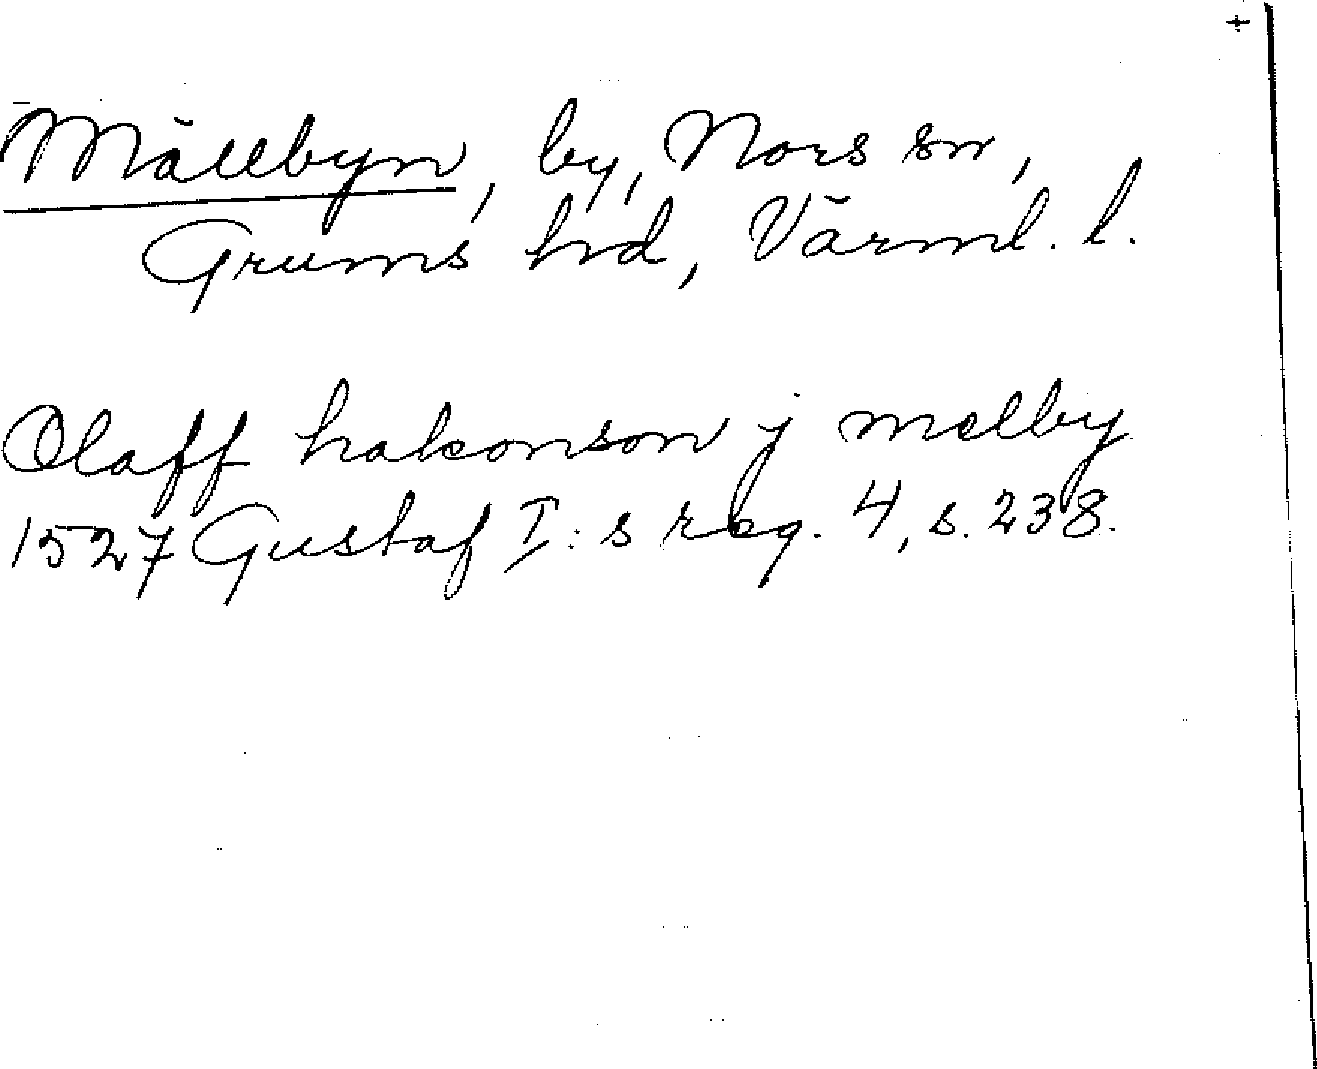 +
Mällbyn, by, Nors sn,
Grums hd, Värml. l.
Olaff hakonson j melby
1527 Gustaf I:s reg. 4, s. 238.